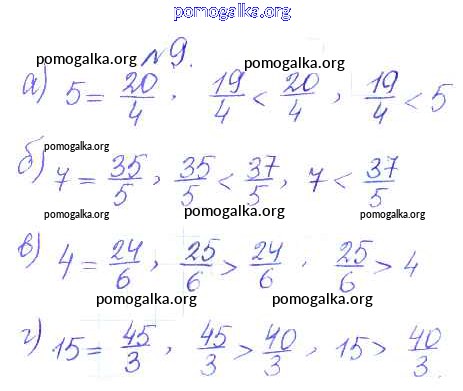 pomogalka.org
pomogalka.org №9. pomogalka.org
а) 5 = 20/4, 19/4 < 20/4, 19/4 < 5
pomogalka.org pomogalka.org
б) 7 = 35/5, 35/5 < 37/5, 7 < 37/5
pomogalka.org pomogalka.org pomogalka.org
в) 4 = 24/6, 25/6 > 24/6, 25/6 > 4
pomogalka.org pomogalka.org
г) 15 = 45/3, 45/3 > 40/3, 15 > 40/3.
pomogalka.org pomogalka.org